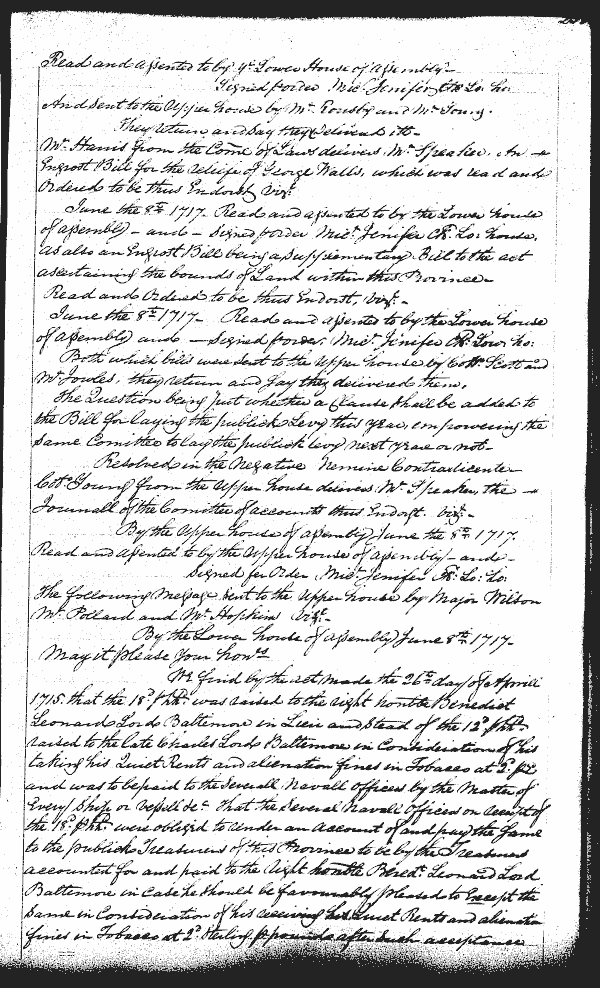 Read and assented to by ye Lower House of Assembly
Signed p order Mic: Jenifer Clk Lo: ho:
And Sent to the Upper house by Mr. Rousby and Mr. Young.
They return and Say they Delivered itt
Mr. Harris from the Come of Laws delivers Mr. Speaker, An
Engrost Bill for the relief of George Walls, which was read and
Ordered to be thus Endorst viz:
June the 8th 1717. Read and assented to by the Lower house
of assembly and Signed p order Mic: Jenifer Clk Lo: house.
as also an Engrost Bill being a Supplementary Bill to the act
ascertaining the bounds of Land within this Province
Read and Ordered to be thus Endorst, viz:
June the 8th 1717 Read and assented to by the Lower house
of assembly and Signed p order. Mic: Jenifer Clk Low: ho:
Both which bills were sent to the Upper house by Coll Scott and
Mr. Jowles, they return and Say they delivered them.
The Question being put whether a Clause Shall be added to
the Bill for laying the publick Levy this year, empowering the
Same Comittee to lay the publick levy next year or not
Resolved in the Negative Nemine Contradicente
Coll Young from the Upper house delivers Mr. Speaker, the
Journall of the Comittee of accounts thus Endorst. viz:
By the Upper house of assembly June the 8th 1717.
Read and assented to by the Upper house of assembly and
Signed per Order, Mic: Jenifer Clk: Lo: ho:
The following Message Sent to the Upper house by Major Wilson
Mr. Pollard and Mr. Hopkins viz:
By the Lower house of assembly June 8th 1717
May it please Your honrs
We find by the act, made the 26th day of Aprill
1715. that the 18d p hhd was raised to the right honble Benedict
Leonard Lord Baltimore in Lieu and Stead of the 12d p hhd
raised to the late Charles Lord Baltemore in Consideration of his
taking his Quiet Rents and alienation fines in Tobacco at 2d p lb
and was to be paid to the Severall Navall officers by the Master of
Every Ship or vessell &c that the Several Navall Officers on receipt of
the 18d p hhd were obliged to render an account of and pay the Same
to the publick Treasurers of this Province to be by the Treasurers
accounted for and paid to the Right honble Bened: Leonard Lord
Baltemore in case he Should be favourably pleased to Except the
Same in Consideration of his receiving his Quiet Rents and alienation
fines in Tobacco at 2d Sterling p pound after Such acceptance